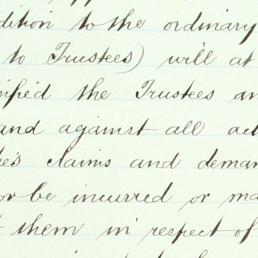 dition to the ordinary
to Trustees) will at
nified the Trustees an
and against all act
claims and deman
or be incurred or ma
them in respect of